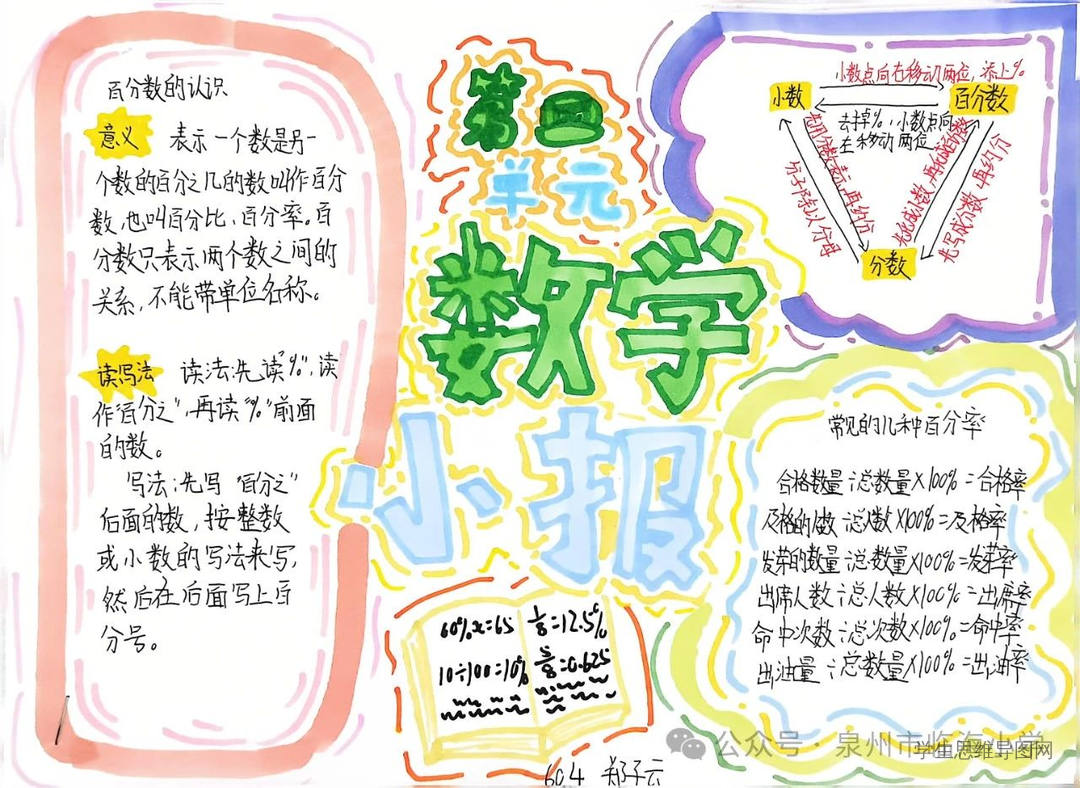 百分数的认识
意义 表示一个数是另一
个数的百分之几的数叫作百分
数,也叫百分比、百分率。百
分数只表示两个数之间的
关系,不能带单位名称。
读写法 读法:先读"%",读
作"百分之",再读"%"前面
的数。
写法:先写"百分之"
后面的数,按整数
或小数的写法来写,
然后在后面写上百
分号。
第二
单元
数学
小报
60%x=65
10÷100=10%
1/8=12.5%
5/8=0.625
小数点向右移动两位,添上%
小数
百分数
去掉%,小数点向
左移动两位
先用分数表示,再约分
分子除以分母
先化成小数,再化成百分数
先写成分数 再约分
分数
常见的几种百分率
合格数量÷总数量×100%=合格率
及格的人数÷总人数×100%=及格率
发芽的数量÷总数量×100%=发芽率
出席人数÷总人数×100%=出席率
命中次数÷总次数×100%=命中率
出油量÷总数量×100%=出油率
公众号·泉州市临海小学
学生思维导图网
604 郑子云